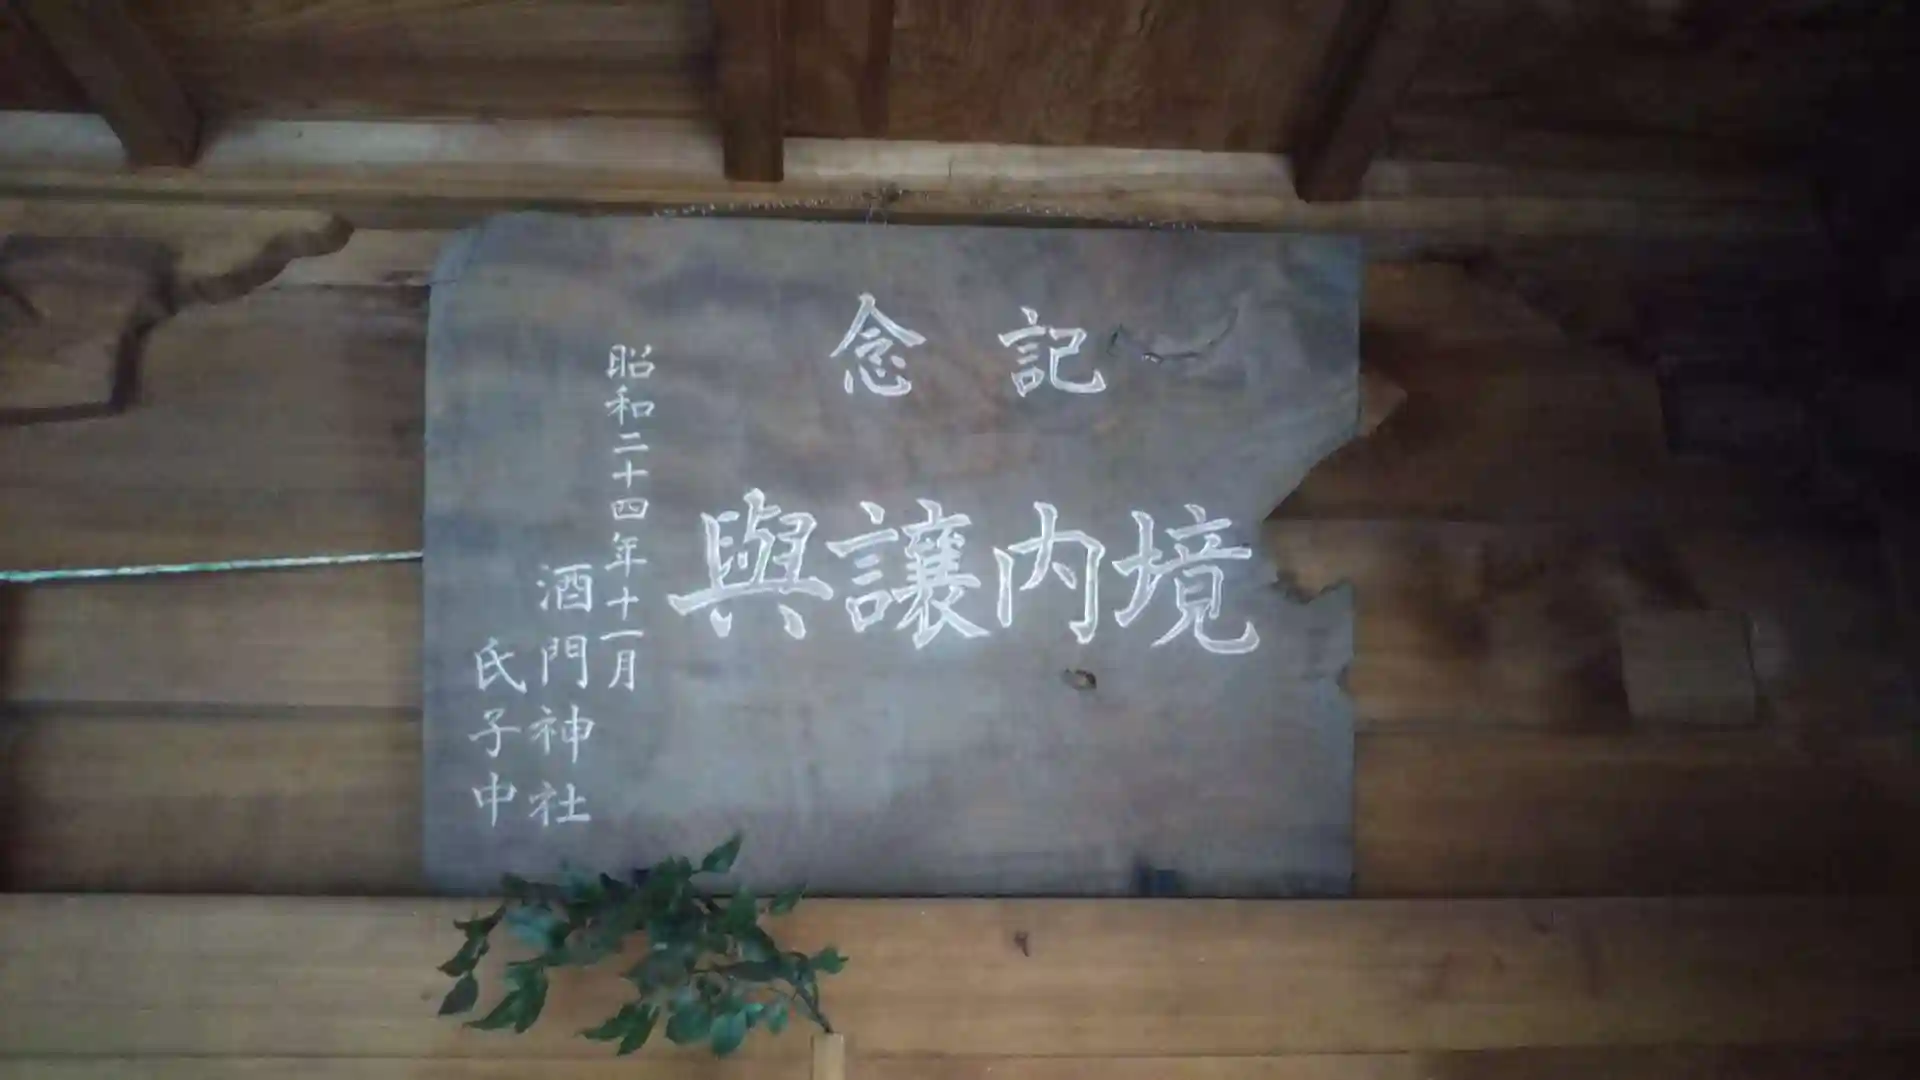 記念
境内讓與
昭和二十四年十一月
酒門神社
氏子中